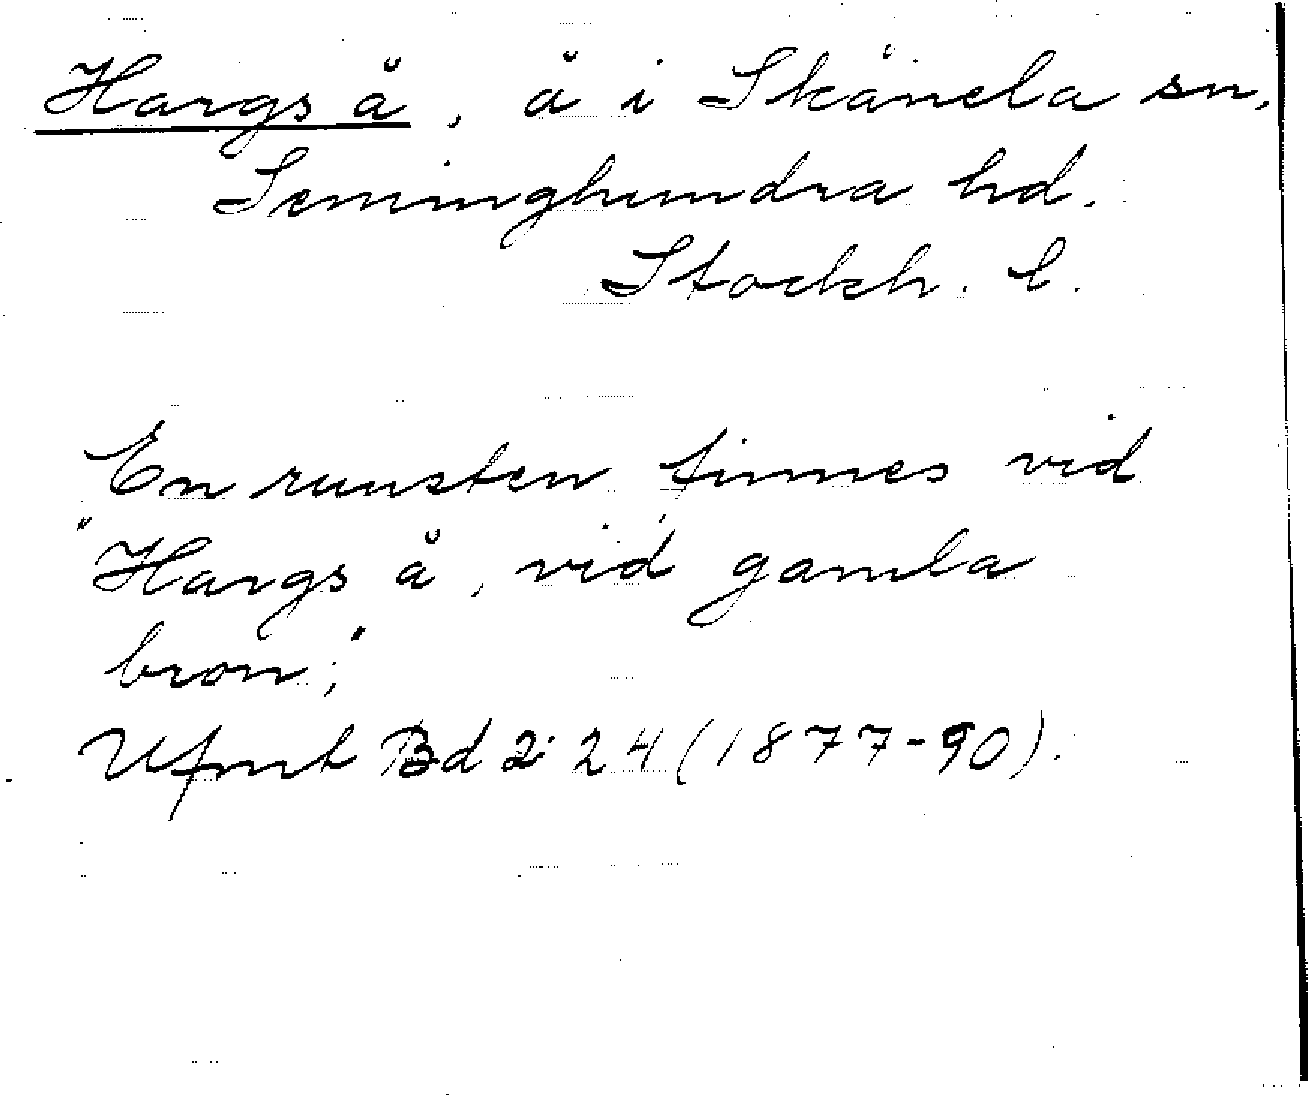 Hargs å, å i Skånela sn,
Seminghundra hd.
Stockh. l.
En runsten finnes vid
"Hargs å, vid gamla
bron;"
Ufmt Bd 2: 24 (1877-90).